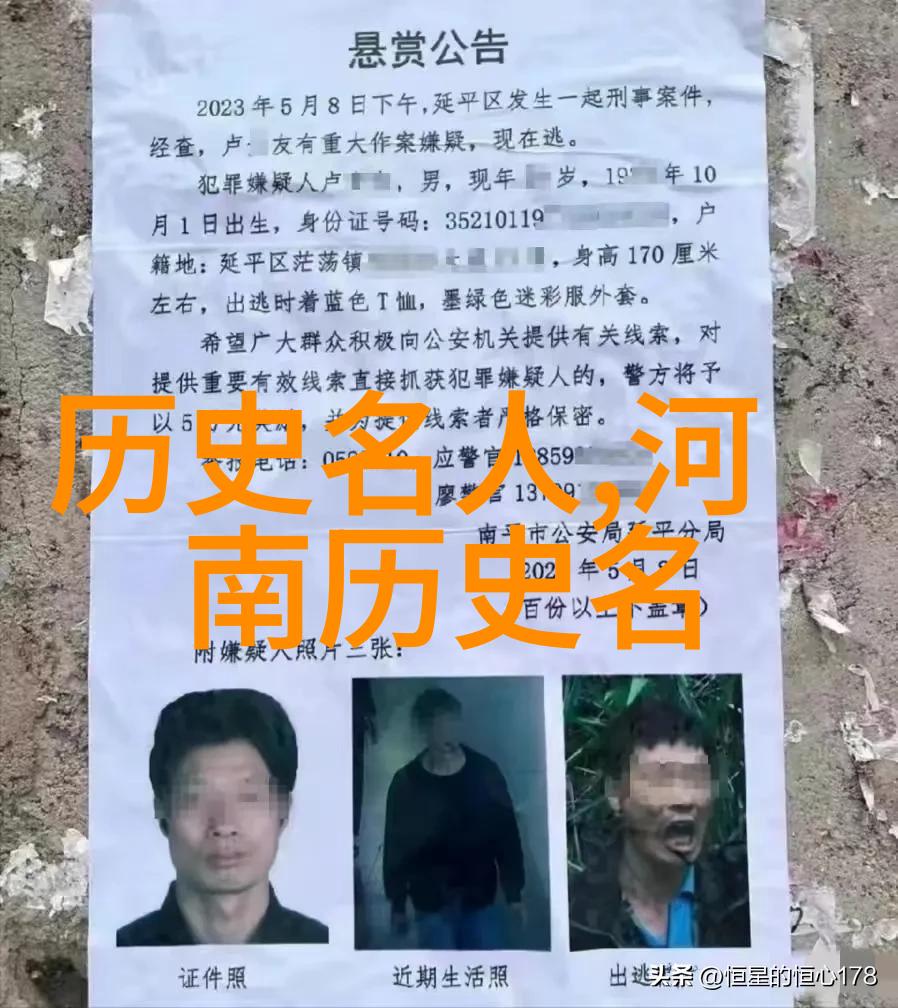 悬赏公告
2023年5月8日下午，延平区发生一起刑事案件，
经查，卢 友有重大作案嫌疑，现在逃。
犯罪嫌疑人卢 ，男，现年 岁，19 年10
月1日出生，身份证号码：35210119 ，户
籍地：延平区茫荡镇 ，身高170厘米
左右，出逃时着蓝色T恤，墨绿色迷彩服外套。
希望广大群众积极向公安机关提供有关线索，对
提供重要有效线索直接抓获犯罪嫌疑人的，警方将予
以5 线索者严格保密。
电话：05 应警官 859
廖警官137
南平市公安局延平分局
202 年5月8日
百份以上不盖章）
历史名人,河
南历史名
附嫌疑人照片三张：
证件照
近期生活照
出逃
头条 @恒星的恒心178